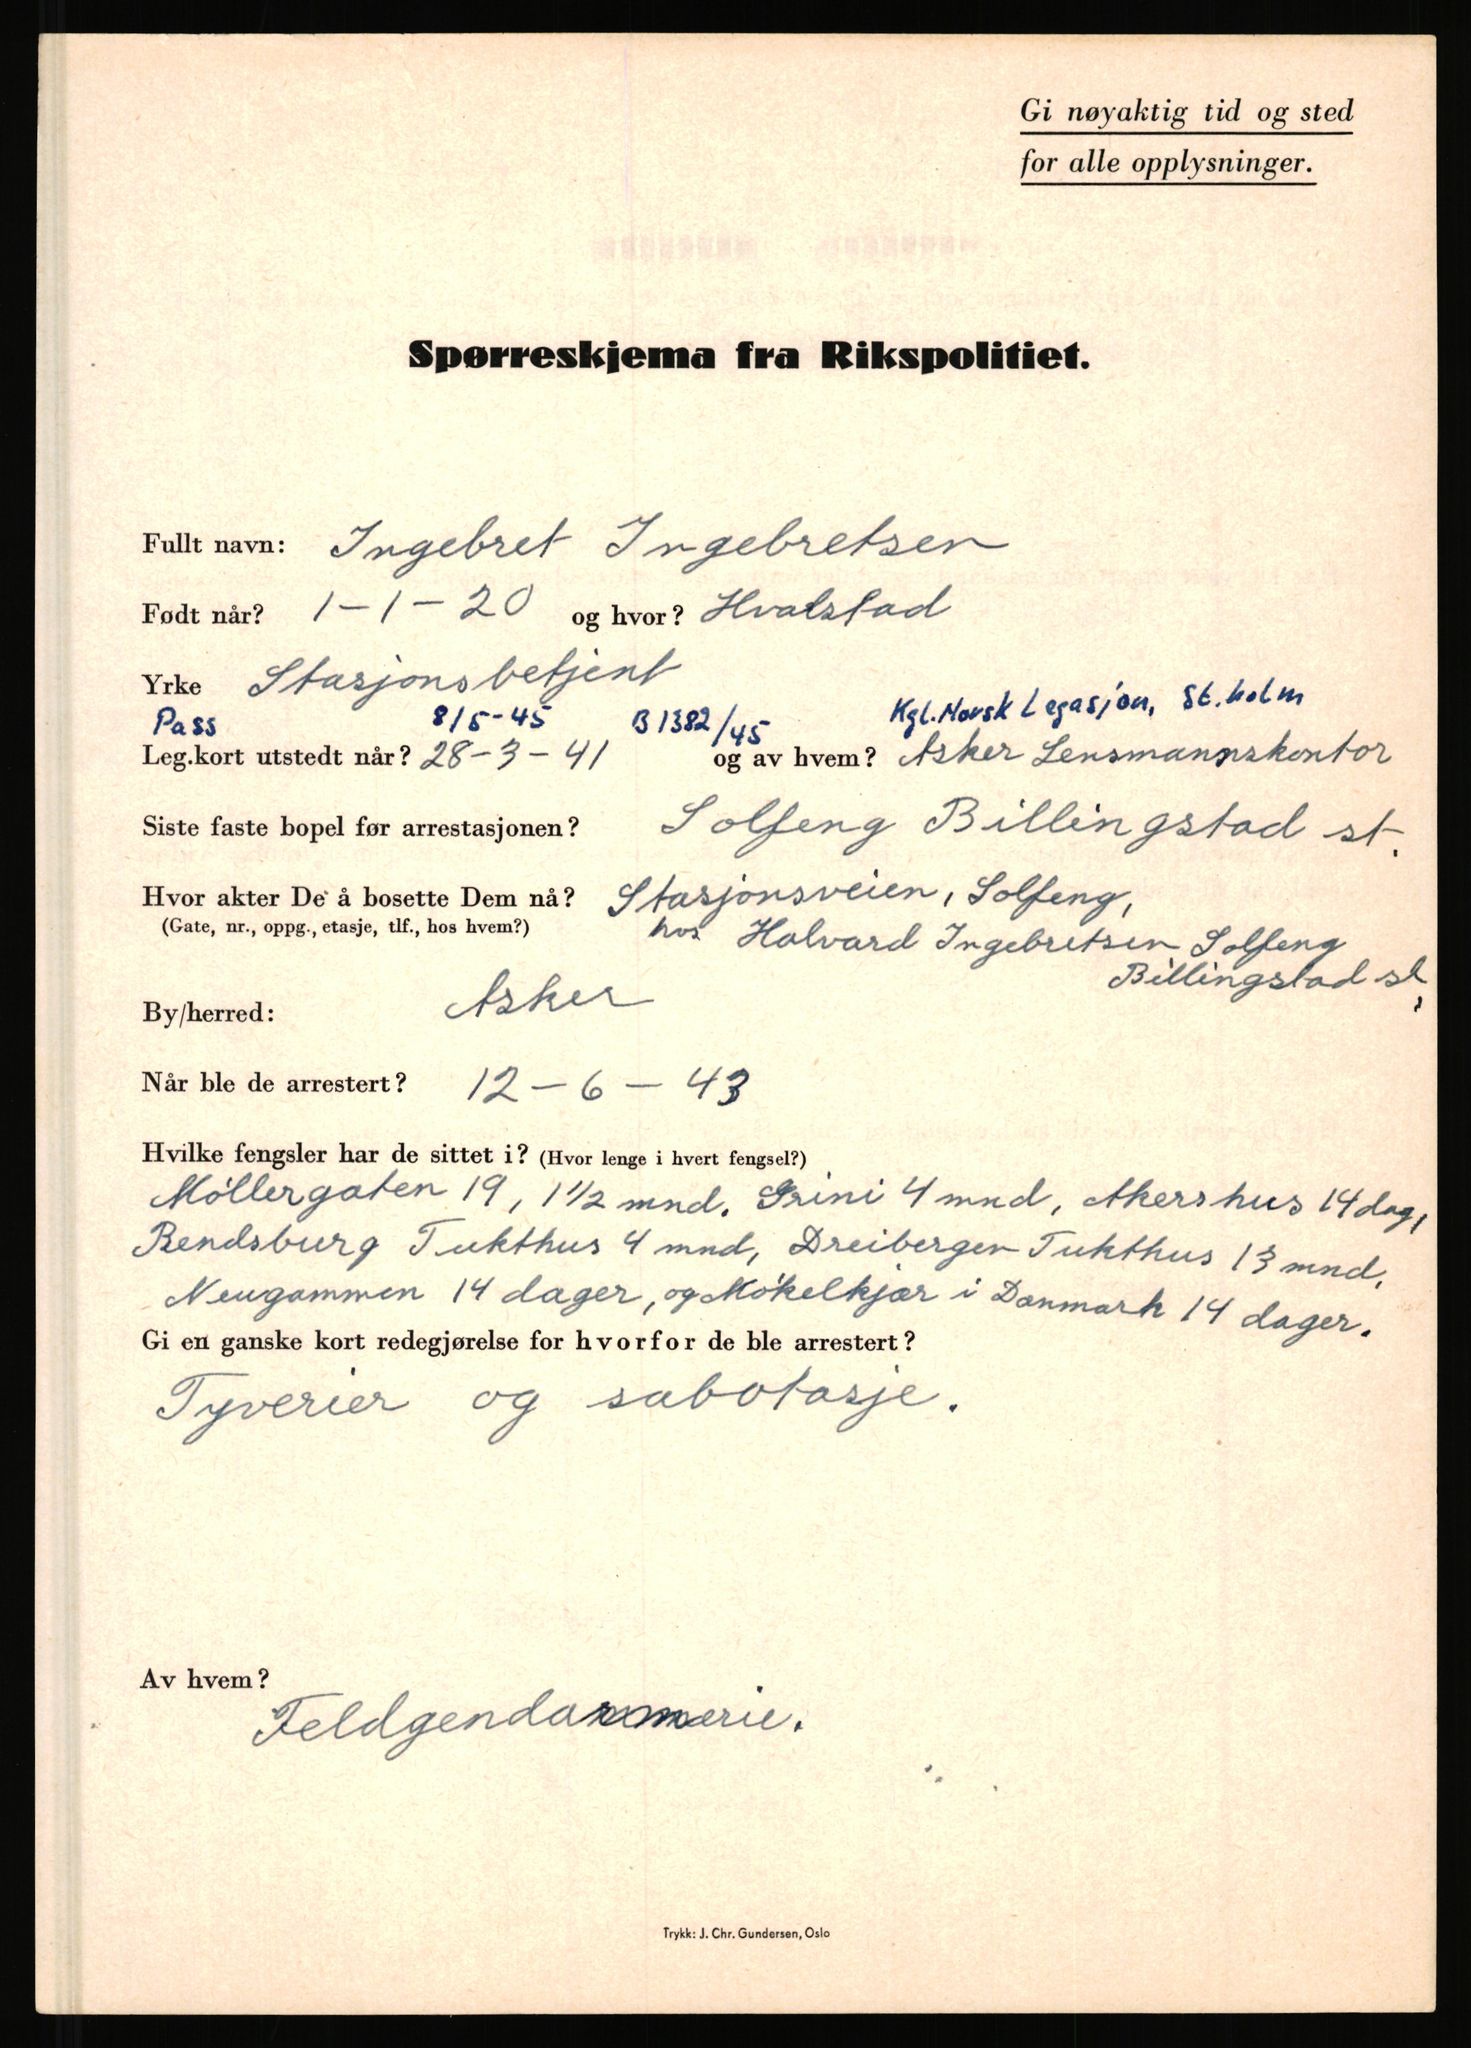 Gi nøyaktig tid og sted
for alle opplysninger.
Spørreskjema fra Rikspolitiet.
Fullt navn: Ingebret Ingebretsen
Født når? 1-1-20 og hvor? Hvalstad
Yrke Stasjonsbetjent
Pass 8/5-45 B1382/45 Kgl. Norsk Legasjon, St.holm
Leg.kort utstedt når? 28-3-41 og av hvem? Asker Lensmannskontor
Siste faste bopel før arrestasjonen? Solfeng Billingstad st.
Hvor akter De å bosette Dem nå? Stasjonsveien, Solfeng,
(Gate, nr., oppg., etasje, tlf., hos hvem?) hos Halvard Ingebretsen Solfeng
Billingstad st,
By/herred: Asker
Når ble de arrestert? 12-6-43
Hvilke fengsler har de sittet i? (Hvor lenge i hvert fengsel?)
Møllergaten 19, 1 1/2 mnd. Grini 4 mnd, Akershus 14 dag,
Rendsburg Tukthus 4 mnd, Dreibergen Tukthus 13 mnd,
Neugammen 14 dager, og Møkelkjær i Danmark 14 dager.
Gi en ganske kort redegjørelse for hvorfor de ble arrestert?
Tyverier og sabotasje.
Av hvem?
Feldgendarmerie.
Trykk: J. Chr. Gundersen, Oslo